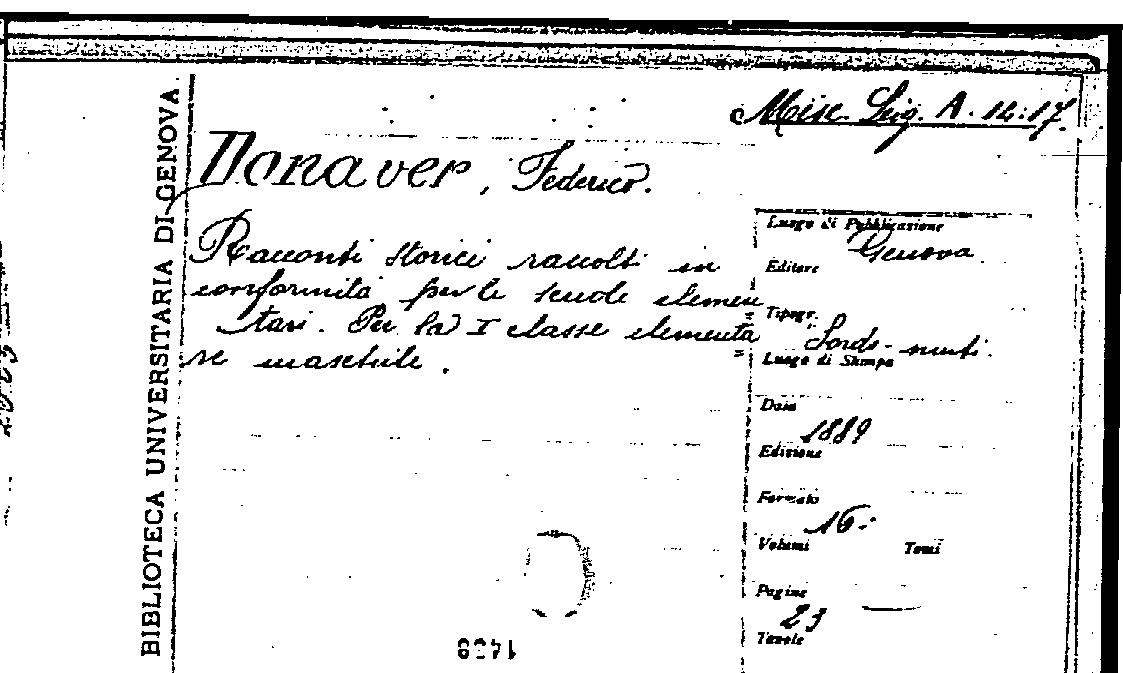 Misc. Lig. A. 14:17.
BIBLIOTECA UNIVERSITARIA DI GENOVA
Donaver, Federico.
Racconti storici raccolti in
conformità per le scuole elemen=
tari. Per la I classe elementa=
re maschile.
Luogo di Pubblicazione
Genova
Editore
Tipogr.
Sordo-muti.
Luogo di Stampa
Data
1889
Edizione
Formato
16.
Volumi Tomi
Pagine
23
Tavole